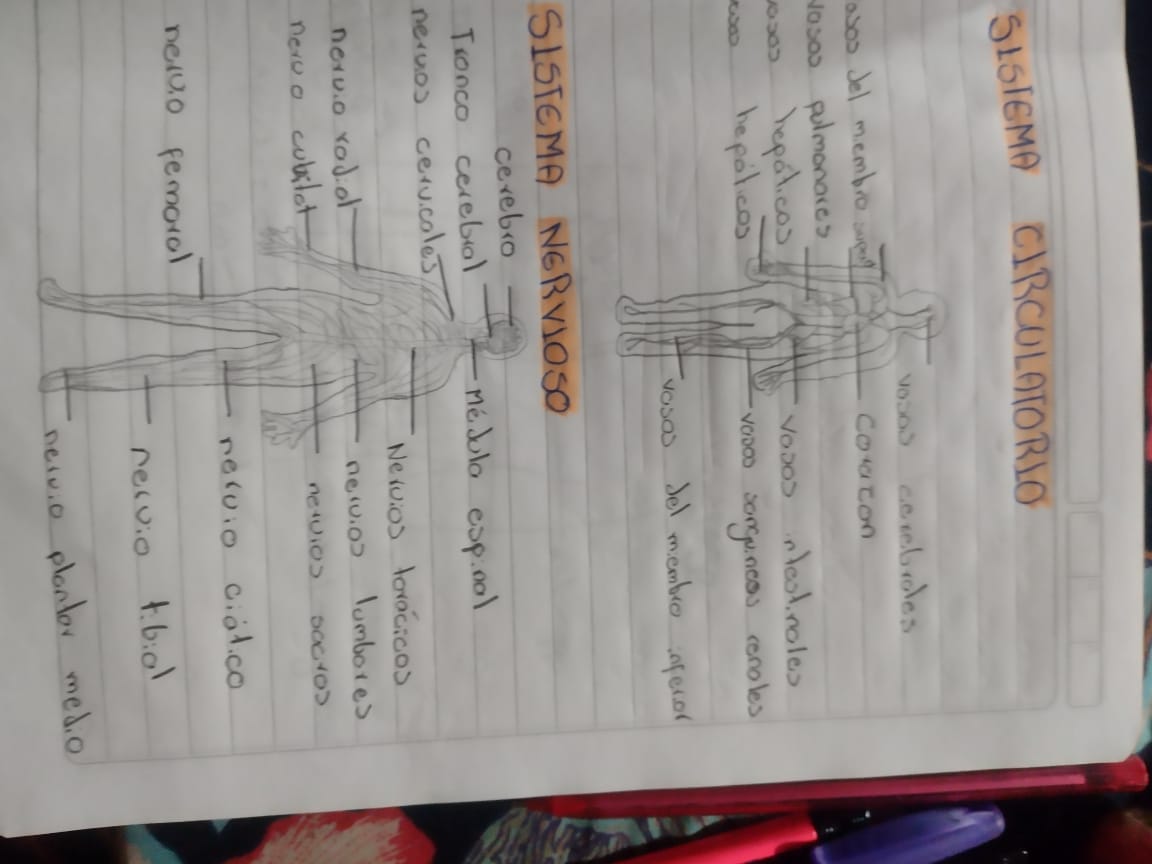 SISTEMA CIRCULATORIO
vasos cerebrales
del miembro
Corazon
vasos pulmonares
hepáticos
vasos intestinales
hepáticos
vasos sanguineos renales
vasos del miembro inferior
SISTEMA NERVIOSO
cerebro
Tronco cerebral
Médula espinal
nervios cervicales
Nervios torácicos
nervio radial
nervios lumbares
nervio cubital
nervios sacros
nervio ciático
nervio femoral
nervio tibial
nervio plantar medio